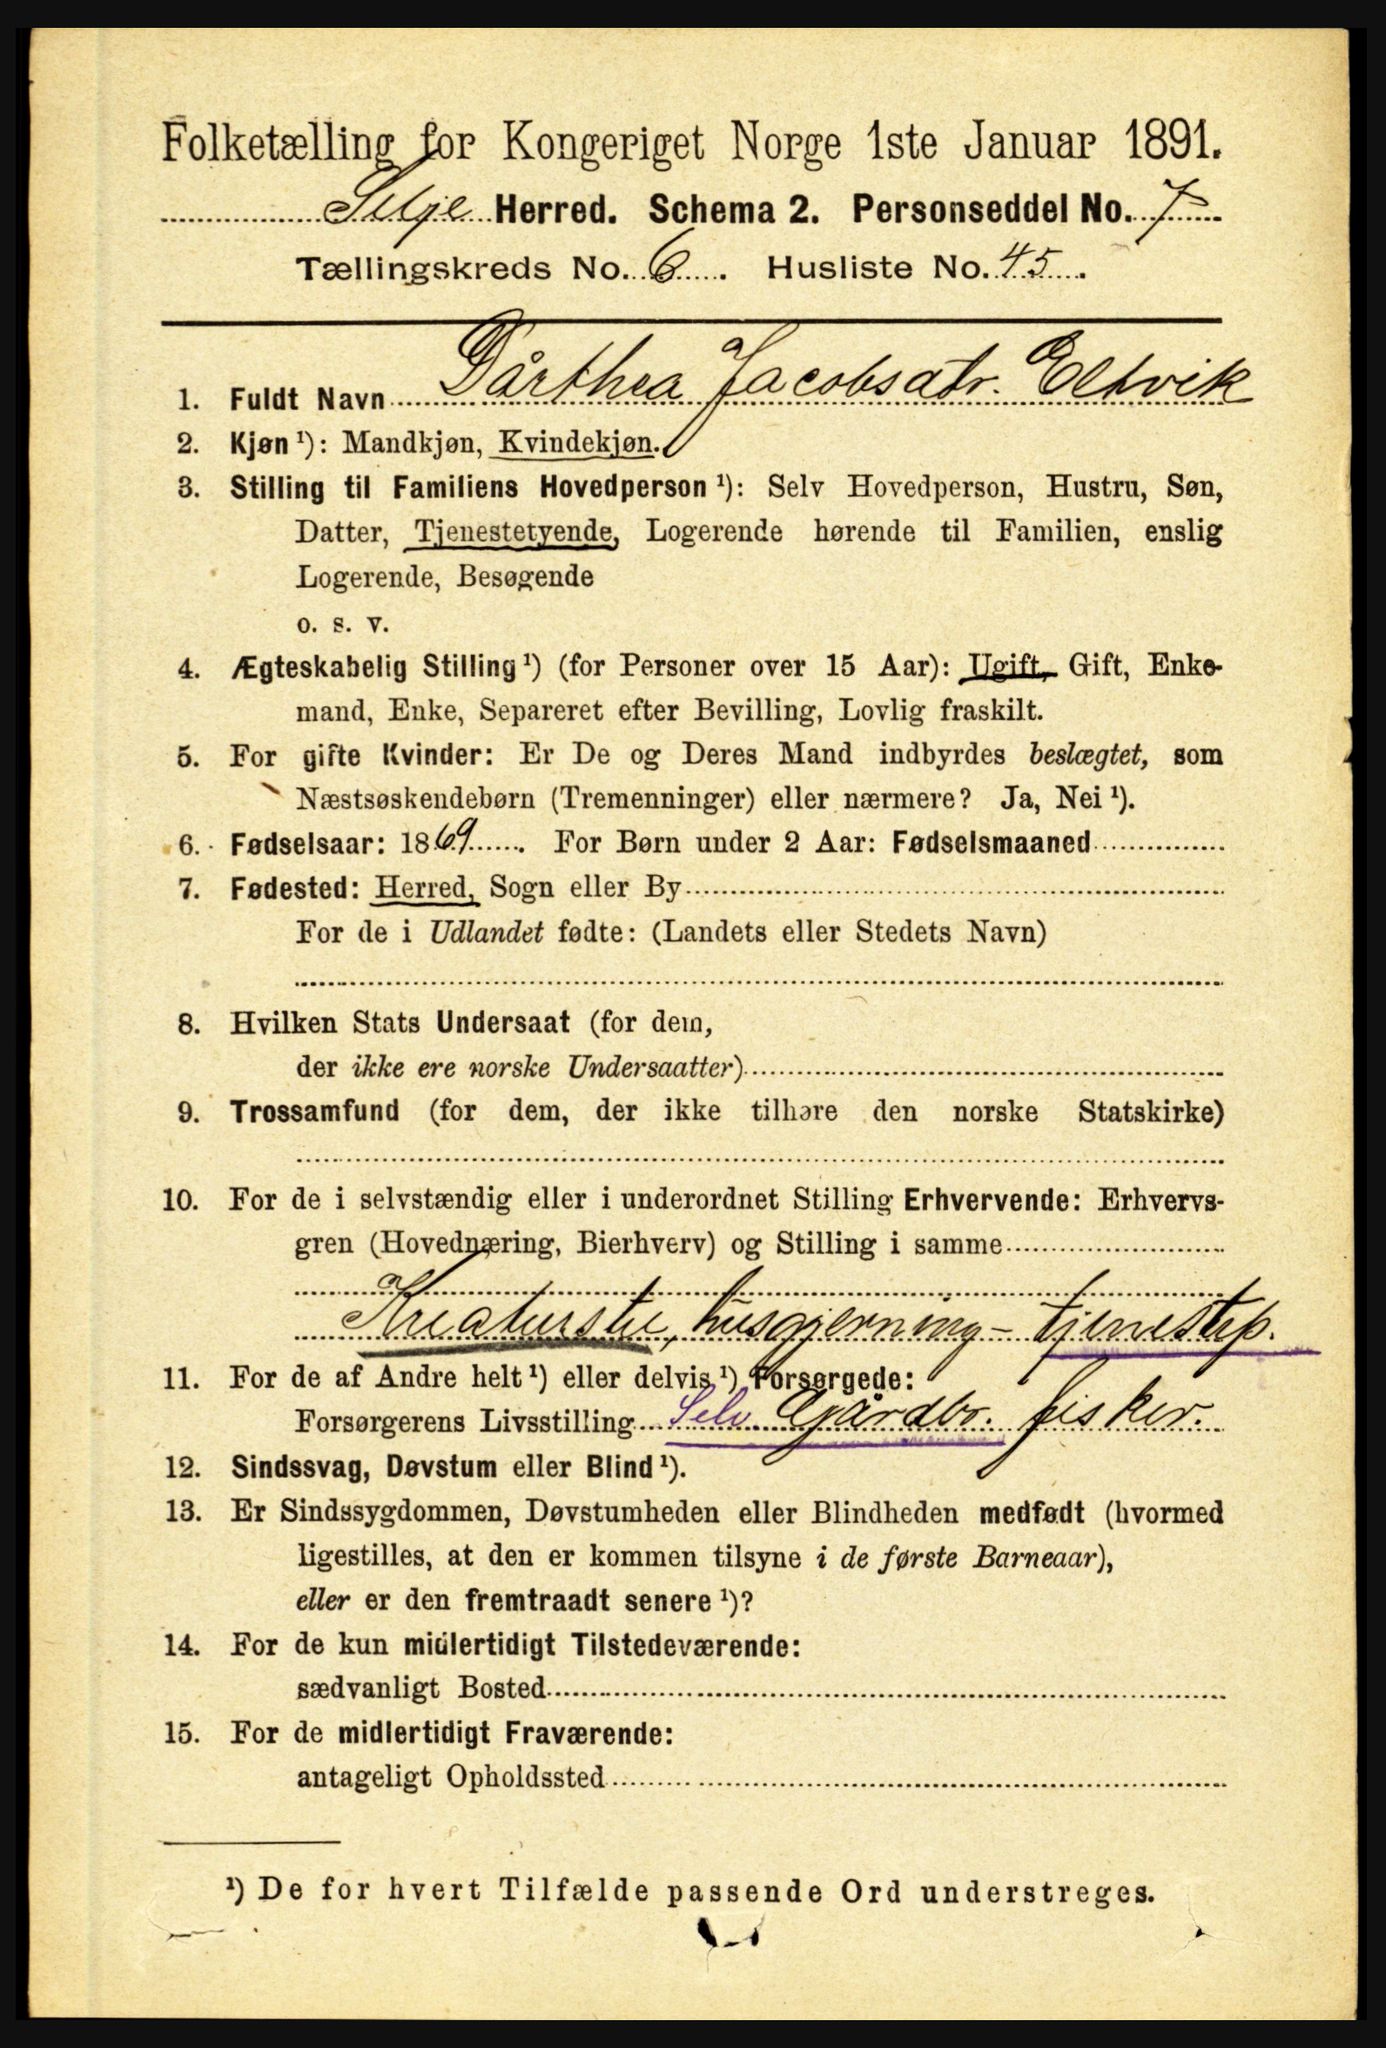 Folketælling for Kongeriget Norge 1ste Januar 1891.
Selje Herred. Schema 2. Personseddel No. 7
Tællingskreds No. 6. Husliste No. 45.
1. Fuldt Navn Dårthea Jacobsdtr. Eltvik
2. Kjøn ¹): Mandkjøn, Kvindekjøn.
3. Stilling til Familiens Hovedperson ¹): Selv Hovedperson, Hustru, Søn,
Datter, Tjenestetyende, Logerende hørende til Familien, enslig
Logerende, Besøgende
o. s. v.
4. Ægteskabelig Stilling ¹) (for Personer over 15 Aar): Ugift, Gift, Enke-
mand, Enke, Separeret efter Bevilling, Lovlig fraskilt.
5. For gifte Kvinder: Er De og Deres Mand indbyrdes beslægtet, som
Næstsøskendebørn (Tremenninger) eller nærmere? Ja, Nei ¹).
6. Fødselsaar: 1869. For Børn under 2 Aar: Fødselsmaaned
7. Fødested: Herred, Sogn eller By
For de i Udlandet fødte: (Landets eller Stedets Navn)
8. Hvilken Stats Undersaat (for dem,
der ikke ere norske Undersaatter)
9. Trossamfund (for dem, der ikke tilhøre den norske Statskirke)
10. For de i selvstændig eller i underordnet Stilling Erhvervende: Erhvervs-
gren (Hovednæring, Bierhverv) og Stilling i samme
Kreaturstel, husgjerning - tjenestep.
11. For de af Andre helt ¹) eller delvis ¹) Forsørgede:
Forsørgerens Livsstilling Selv Gårdbr. fisker.
12. Sindssvag, Døvstum eller Blind ¹).
13. Er Sindssygdommen, Døvstumheden eller Blindheden medfødt (hvormed
ligestilles, at den er kommen tilsyne i de første Barneaar),
eller er den fremtraadt senere ¹)?
14. For de kun midlertidigt Tilstedeværende:
sædvanligt Bosted
15. For de midlertidigt Fraværende:
antageligt Opholdssted
¹) De for hvert Tilfælde passende Ord understreges.